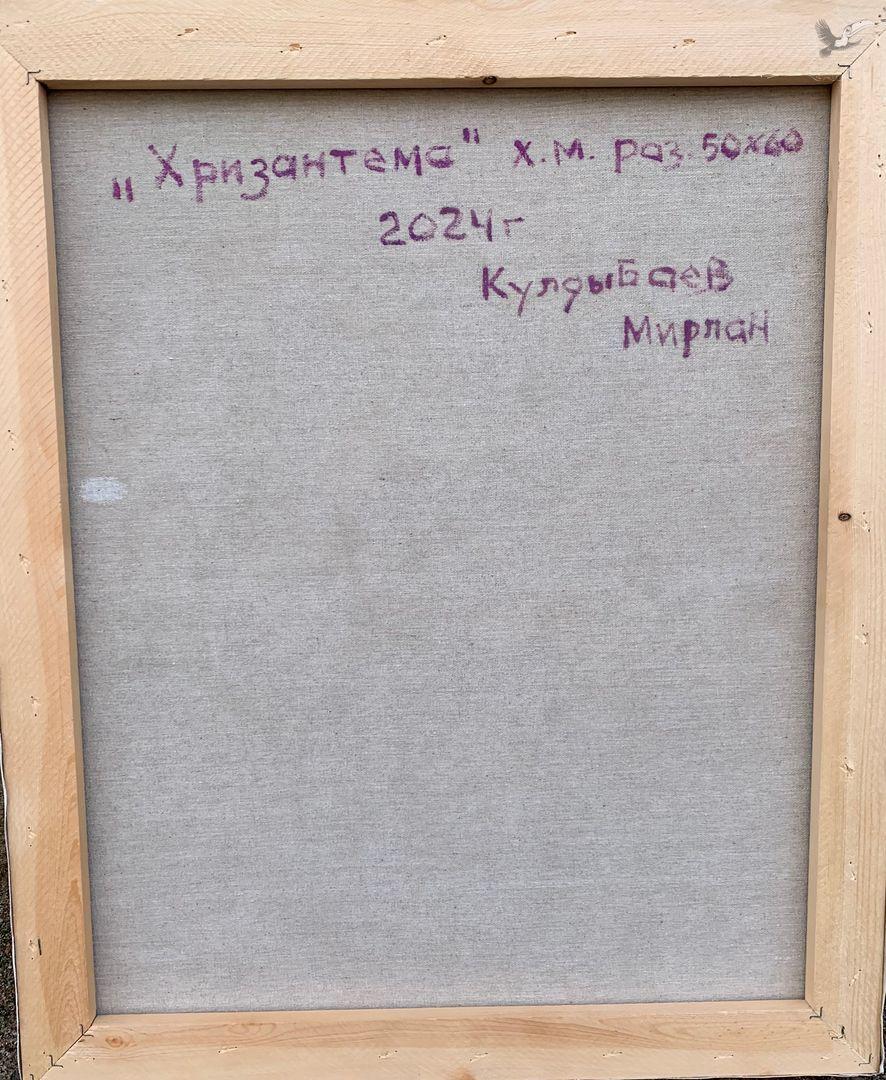 „Хризантема" х.м. раз. 50х60
2024г
Кулдыбаев
Мирлан